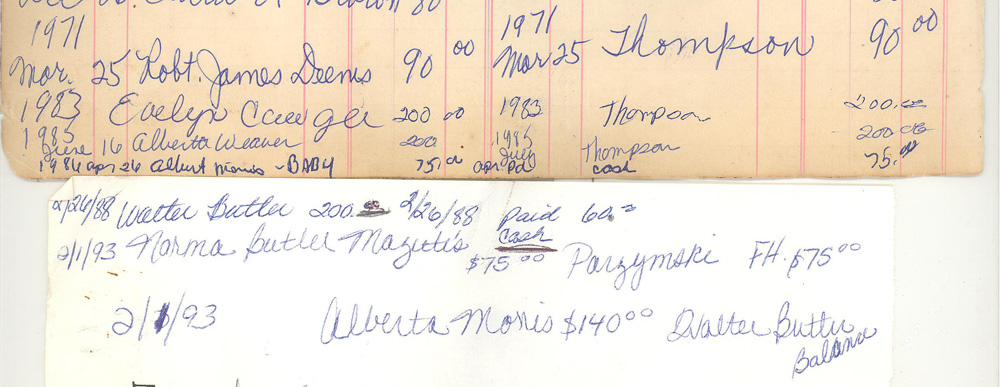 1971 1971
Mar. 25 Robt. James Deems 90 00 Mar 25 Thompson 90 00
1983 Evelyn Cauger 200 00 1983 Thompson 200.00
1985 1985
June 16 Alberta Weaver 200 July Thompson 200.00
1986 apr 26 Albert Morris - BABY 75.00 apr. Pd cash 75.00
2/26/88 Walter Butler 200.00 2/26/88 Paid 60.=
Cash
2/1/93 Norma Butler Mazutis $75 00 Parzymski FH. $75 00
2/1/93 Alberta Morris $140 00 Walter Butler
Balance